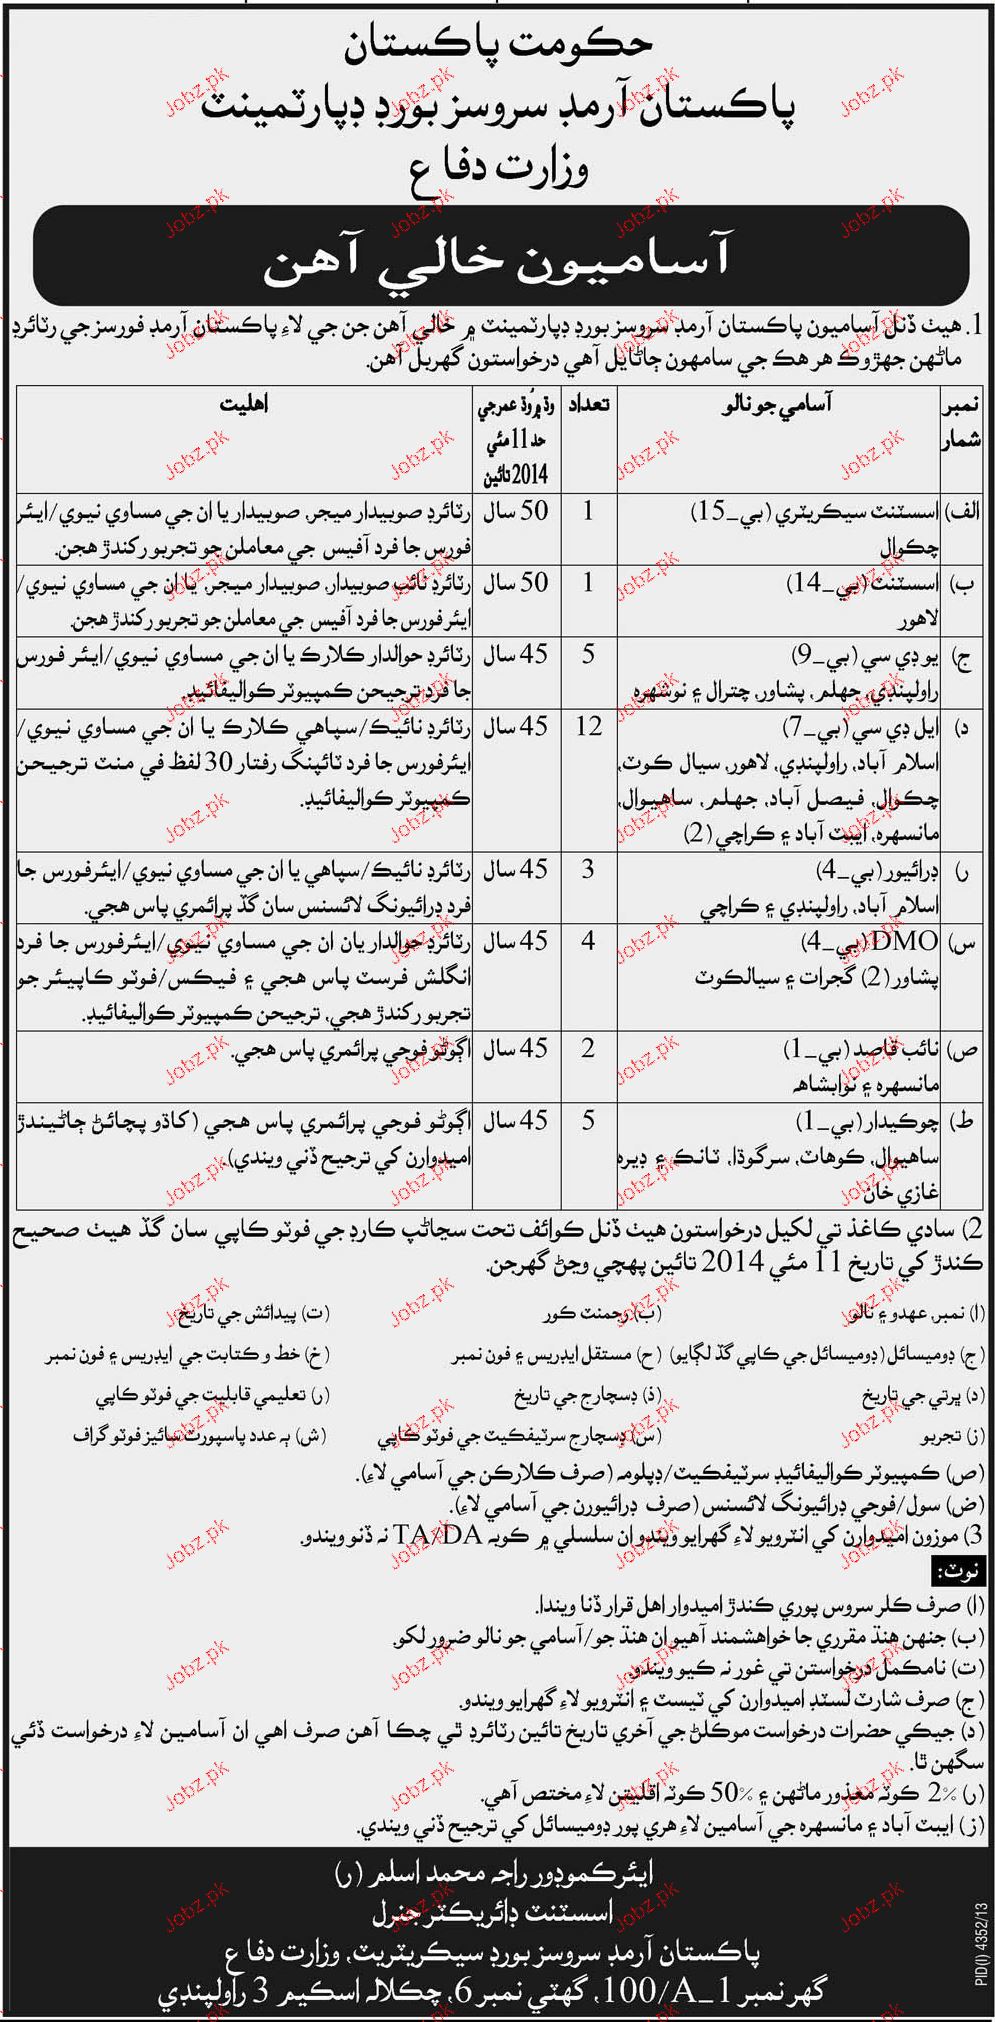 حڪومت پاڪستان
پاڪستان آرمڊ سروسز بورڊ ڊپارٽمينٽ
وزارت دفاع
آساميون خالي آهن
1. هيٺ ڏنل آساميون پاڪستان آرمڊ سروسز بورڊ ڊپارٽمينٽ ۾ خالي آهن جن جي لاءِ پاڪستان آرمڊ فورسز جي رٽائرڊ
ماڻهن جهڙوڪ هر هڪ جي سامهون ڄاڻايل آهي درخواستون گهربل آهن.
نمبر شمار	آسامي جو نالو	تعداد	وڌ ۾ وڌ عمر جي حد 11 مئي 2014 تائين	اهليت
الف) اسسٽنٽ سيڪريٽري (بي_15)	1	50 سال	رٽائرڊ صوبيدار ميجر، صوبيدار يا ان جي مساوي نيوي/ايئر
چڪوال	فورس جا فرد آفيس جي معاملن جو تجربو رکندڙ هجن.
ب) اسسٽنٽ (بي_14)	1	50 سال	رٽائرڊ نائب صوبيدار، صوبيدار ميجر، يا ان جي مساوي نيوي/
لاهور	ايئرفورس جا فرد آفيس جي معاملن جو تجربو رکندڙ هجن.
ج) يو ڊي سي (بي_9)	5	45 سال	رٽائرڊ حوالدار ڪلارڪ يا ان جي مساوي نيوي/ايئر فورس
راولپنڊي، جهلم، پشاور، چترال ۽ نوشهره	جا فرد ترجيحن ڪمپيوٽر ڪواليفائيڊ.
د) ايل ڊي سي (بي_7)	12	45 سال	رٽائرڊ نائيڪ/سپاهي ڪلارڪ يا ان جي مساوي نيوي/
اسلام آباد، راولپنڊي، لاهور، سيال ڪوٽ،	ايئرفورس جا فرد ٽائپنگ رفتار 30 لفظ في منٽ ترجيحن
چڪوال، فيصل آباد، جهلم، ساهيوال،	ڪمپيوٽر ڪواليفائيڊ.
مانسهره، ايبٽ آباد ۽ ڪراچي (2)
ر) ڊرائيور (بي_4)	3	45 سال	رٽائرڊ نائيڪ/سپاهي يا ان جي مساوي نيوي/ايئرفورس جا
اسلام آباد، راولپنڊي ۽ ڪراچي	فرد ڊرائيونگ لائسنس سان گڏ پرائمري پاس هجي.
س) DMO (بي_4)	4	45 سال	رٽائرڊ حوالدار يان ان جي مساوي نيوي/ايئرفورس جا فرد
پشاور (2) گجرات ۽ سيالڪوٽ	انگلش فرسٽ پاس هجي ۽ فيڪس/فوٽو ڪاپيئر جو
تجربو رکندڙ هجي، ترجيحن ڪمپيوٽر ڪواليفائيڊ.
ص) نائب قاصد (بي_1)	2	45 سال	اڳوڻو فوجي پرائمري پاس هجي.
مانسهره ۽ نوابشاهه
ط) چوڪيدار (بي_1)	5	45 سال	اڳوڻو فوجي پرائمري پاس هجي (کاڌو پچائڻ ڄاڻيندڙ
ساهيوال، ڪوهاٽ، سرگوڌا، ٽانڪ ۽ ڊيره	اميدوارن کي ترجيح ڏني ويندي).
غازي خان
2) سادي ڪاغذ تي لکيل درخواستون هيٺ ڏنل ڪوائف تحت سڃاڻپ ڪارڊ جي فوٽو ڪاپي سان گڏ هيٺ صحيح
ڪندڙ کي تاريخ 11 مئي 2014 تائين پهچي وڃڻ گهرجن.
(ا) نمبر، عهدو ۽ نالو	(ب) رجمنٽ ڪور	(ت) پيدائش جي تاريخ
(ج) ڊوميسائل (ڊوميسائل جي ڪاپي گڏ لڳايو)	(ح) مستقل ايڊريس ۽ فون نمبر	(خ) خط و ڪتابت جي ايڊريس ۽ فون نمبر
(د) ڀرتي جي تاريخ	(ذ) ڊسچارج جي تاريخ	(ر) تعليمي قابليت جي فوٽو ڪاپي
(ز) تجربو	(س) ڊسچارج سرٽيفڪيٽ جي فوٽو ڪاپي	(ش) ٻه عدد پاسپورٽ سائيز فوٽو گراف
(ص) ڪمپيوٽر ڪواليفائيڊ سرٽيفڪيٽ/ڊپلومه (صرف ڪلارڪن جي آسامي لاءِ).
(ض) سول/فوجي ڊرائيونگ لائسنس (صرف ڊرائيورن جي آسامي لاءِ).
3) موزون اميدوارن کي انٽرويو لاءِ گهرايو ويندو ان سلسلي ۾ ڪوبه TA/DA نه ڏنو ويندو.
نوٽ:
(ا) صرف ڪلر سروس پوري ڪندڙ اميدوار اهل قرار ڏنا ويندا.
(ب) جنهن هنڌ مقرري جا خواهشمند آهيو ان هنڌ جو/آسامي جو نالو ضرور لکو.
(ت) نامڪمل درخواستن تي غور نه ڪيو ويندو.
(ج) صرف شارٽ لسٽڊ اميدوارن کي ٽيسٽ ۽ انٽرويو لاءِ گهرايو ويندو.
(د) جيڪي حضرات درخواست موڪلڻ جي آخري تاريخ تائين رٽائرڊ ٿي چڪا آهن صرف اهي ان آسامين لاءِ درخواست ڏئي
سگهن ٿا.
(ر) 2% ڪوٽه معذور ماڻهن ۽ 50% ڪوٽه اقليتن لاءِ مختص آهي.
(ز) ايبٽ آباد ۽ مانسهره جي آسامين لاءِ هري پور ڊوميسائل کي ترجيح ڏني ويندي.
ايئرڪموڊور راجه محمد اسلم (ر)
اسسٽنٽ ڊائريڪٽر جنرل
پاڪستان آرمڊ سروسز بورڊ سيڪريٽريٽ، وزارت دفاع
گهر نمبر 1_100/A، گهٽي نمبر 6، چڪلاله اسڪيم 3 راولپنڊي
PID(I) 4352/13
Jobz.pk